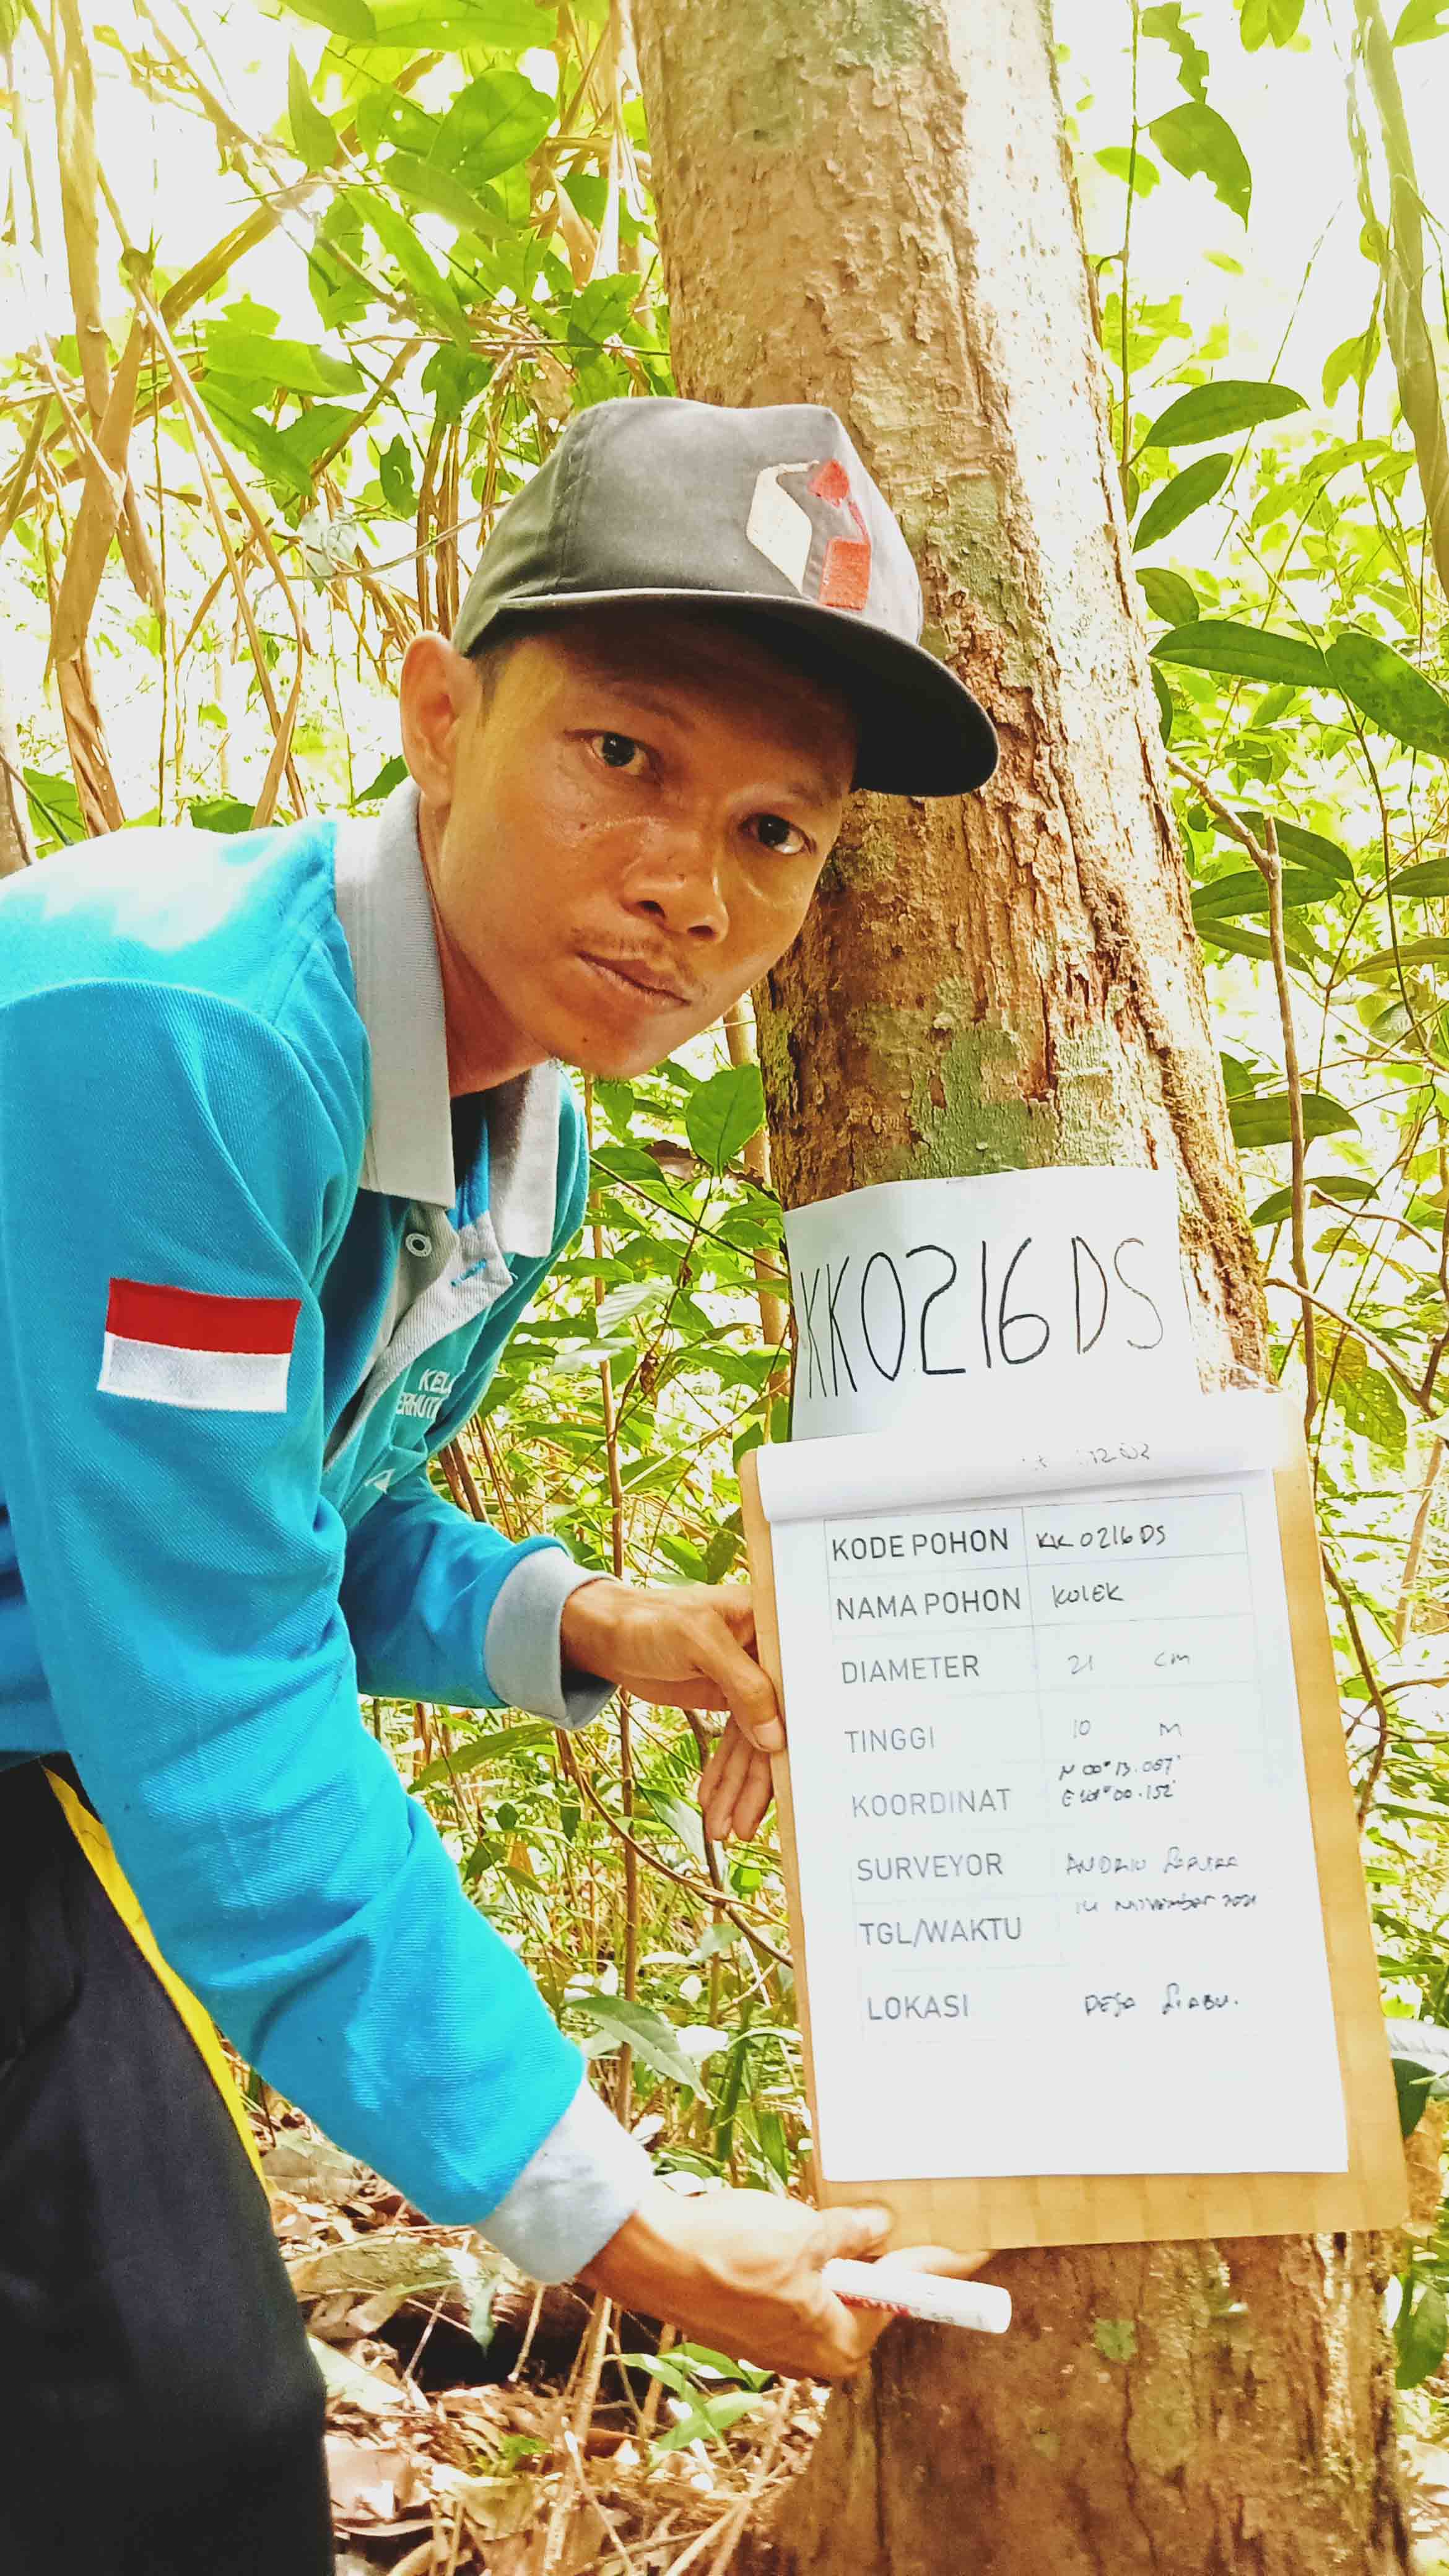 KK0216DS
KODE POHON KK 0216 DS
NAMA POHON KOLEK
DIAMETER 21 cm
TINGGI 10 M
KOORDINAT N 00° 13.067'
00.152'
SURVEYOR
TGL/WAKTU 14 November 2021
LOKASI DESA SIABU.
KEL